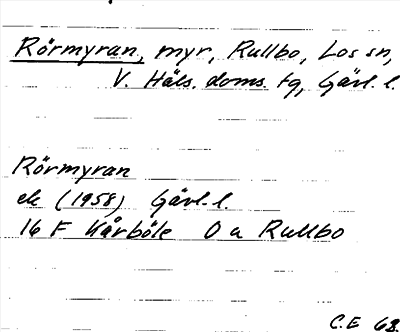 Rörmyran, myr, Rullbo, Los sn,
V. Häls. doms. tg, Gävl. l.
Rörmyran
ek (1958) Gävl. l.
16 F Kårböle O a Rullbo
C.E 68.